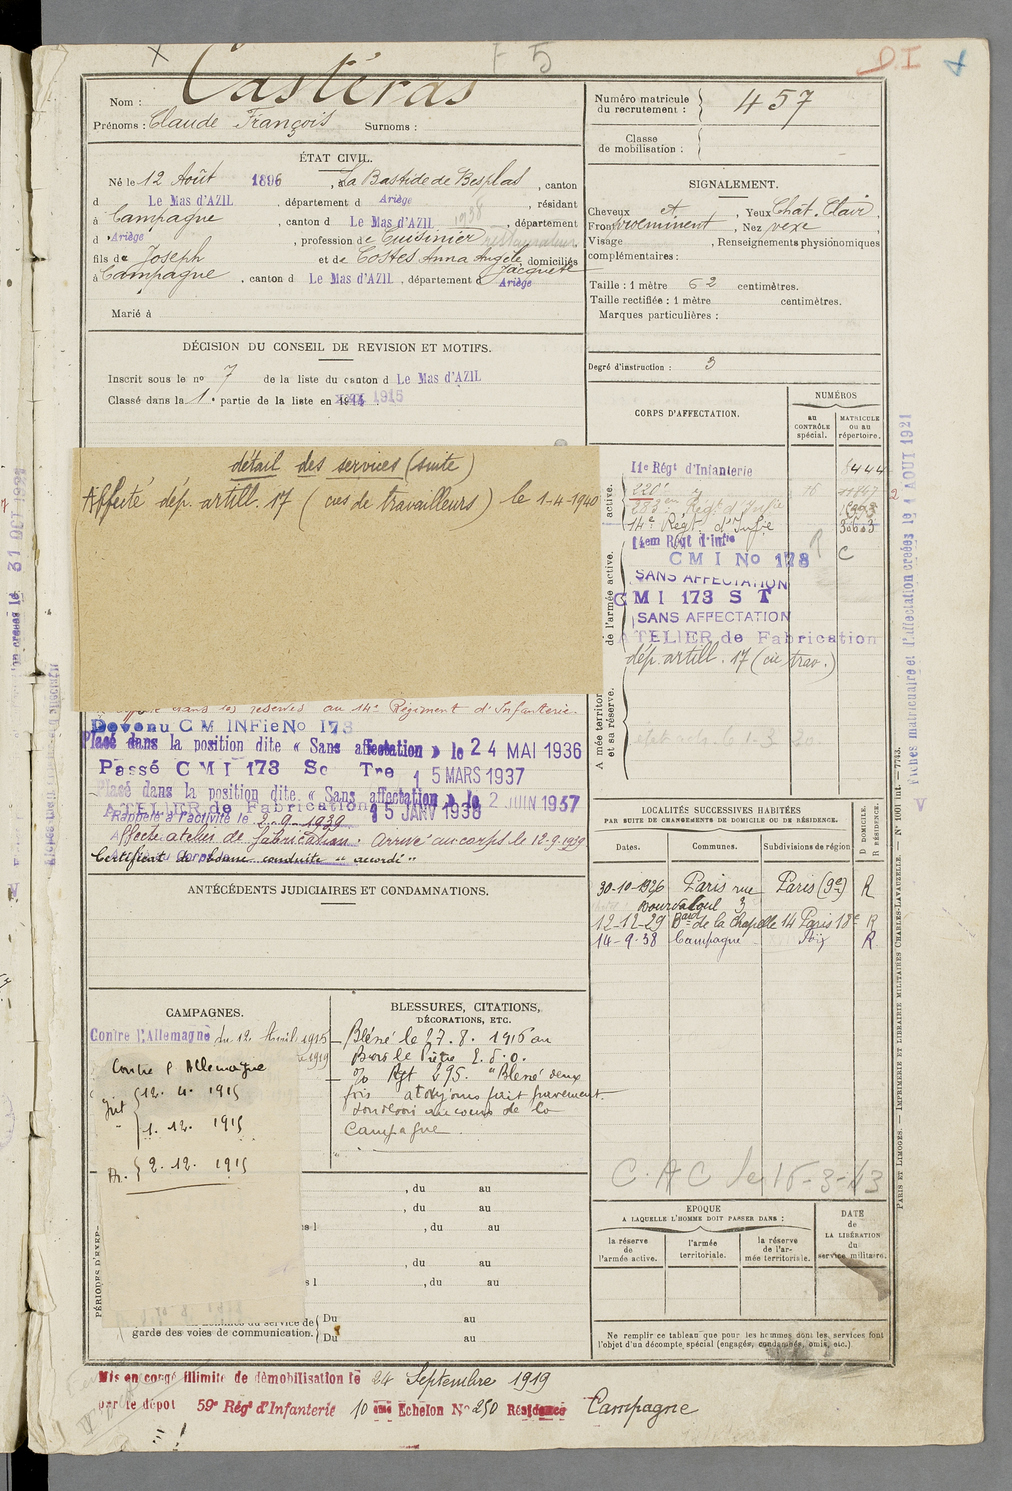 F 5
D.I
Nom : Castéras
Prénoms : Claude François Surnoms :
Numéro matricule du recrutement : 457
Classe de mobilisation :
ÉTAT CIVIL.
Né le 12 Août 1896, La Bastide de Besplas, canton
d Le Mas d'AZIL, département d Ariège, résidant
à Campagne, canton d Le Mas d'AZIL 1938, département
d Ariège, profession de Cuisinier restaurateur
fils de Joseph et de Costes Anna Angèle Jacquete domiciliés
à Campagne, canton d Le Mas d'AZIL, département d Ariège
Marié à
SIGNALEMENT.
Cheveux ct, Yeux Chat. Clair,
Front proeminent, Nez vexe,
Visage , Renseignements physionomiques
complémentaires :
Taille : 1 mètre 62 centimètres.
Taille rectifiée : 1 mètre centimètres.
Marques particulières :
Degré d'instruction : 3
DÉCISION DU CONSEIL DE REVISION ET MOTIFS.
Inscrit sous le no 7 de la liste du canton d Le Mas d'AZIL
Classé dans la 1e partie de la liste en 1915
détail des services (suite)
Affecté dép. artill. 17 (cies de travailleurs) le 1-4-1940
au 14e Régiment d'Infanterie.
Devenu C M INFie No 173
Placé dans la position dite « Sans affectation » le 24 MAI 1936
Passé C M I 173 Sc Tre 15 MARS 1937
Placé dans la position dite « Sans affectation » le 2 JUIN 1937
ATELIER de Fabrication 15 JANV 1938
Rappelé à l'activité le 2-9-1939
Affecté atelier de fabrication. Arrivé au corps le 12-9-1939
Certificat de bonne conduite "accordé"
CORPS D'AFFECTATION.
NUMÉROS
au CONTRÔLE spécial.
MATRICULE ou au répertoire.
active.
11e Régt d'Infanterie 8444
220e
283e Régt d'Infie
14e Régt. d'Infie 3603
de l'armée active.
14em Régt d'Infie
C M I No 178 C
SANS AFFECTATION
C M I 173 S T
SANS AFFECTATION
ATELIER de Fabrication
dép. artill. 17 (cie trav.)
et sa réserve.
LOCALITÉS SUCCESSIVES HABITÉES
PAR SUITE DE CHANGEMENTS DE DOMICILE OU DE RÉSIDENCE.
Dates. Communes. Subdivisions de région D DOMICILE. R RÉSIDENCE.
30-10-1926 Paris rue Paris (9e) R
12-12-29 Bard de la Chapelle 14 Paris 18e R
14-9-38 Campagne Foix R
C. A C le 16-3-43
ANTÉCÉDENTS JUDICIAIRES ET CONDAMNATIONS.
CAMPAGNES.
Contre l'Allemagne du 12 Avril 1915
1919
Contre l'Allemagne
Int { 12. 4. 1915
1. 12. 1915
{ 2. 12. 1915
BLESSURES, CITATIONS,
DÉCORATIONS, ETC.
Blessé le 27. 8. 1916 au
Bois le Prêtre
Rgt 295. "Blessé deux
fois a toujours fait bravement
son devoir au cours de la
Campagne.
PÉRIODES D'EXER-
, du au
, du au
, du au
, du au
, du au
service de { Du au
garde des voies de communication. { Du au
EPOQUE
A LAQUELLE L'HOMME DOIT PASSER DANS :
la réserve de l'armée active.
l'armée territoriale.
la réserve de l'armée territoriale.
DATE de LA LIBÉRATION du service militaire.
Ne remplir ce tableau que pour les hommes dont les services font
l'objet d'un décompte spécial (engagés, condamnés, omis, etc.)
Mis en congé illimité de démobilisation le 24 Septembre 1919
par le dépôt 59e Régt d'Infanterie 10 ème Echelon No 250 Résidence Campagne
PARIS ET LIMOGES. — IMPRIMERIE ET LIBRAIRIE MILITAIRES CHARLES-LAVAUZELLE. — No 1001 bis. — 7743.
Fiches matriculaire et d'affectation créées le 1 AOUT 1921
31 OCT 1929